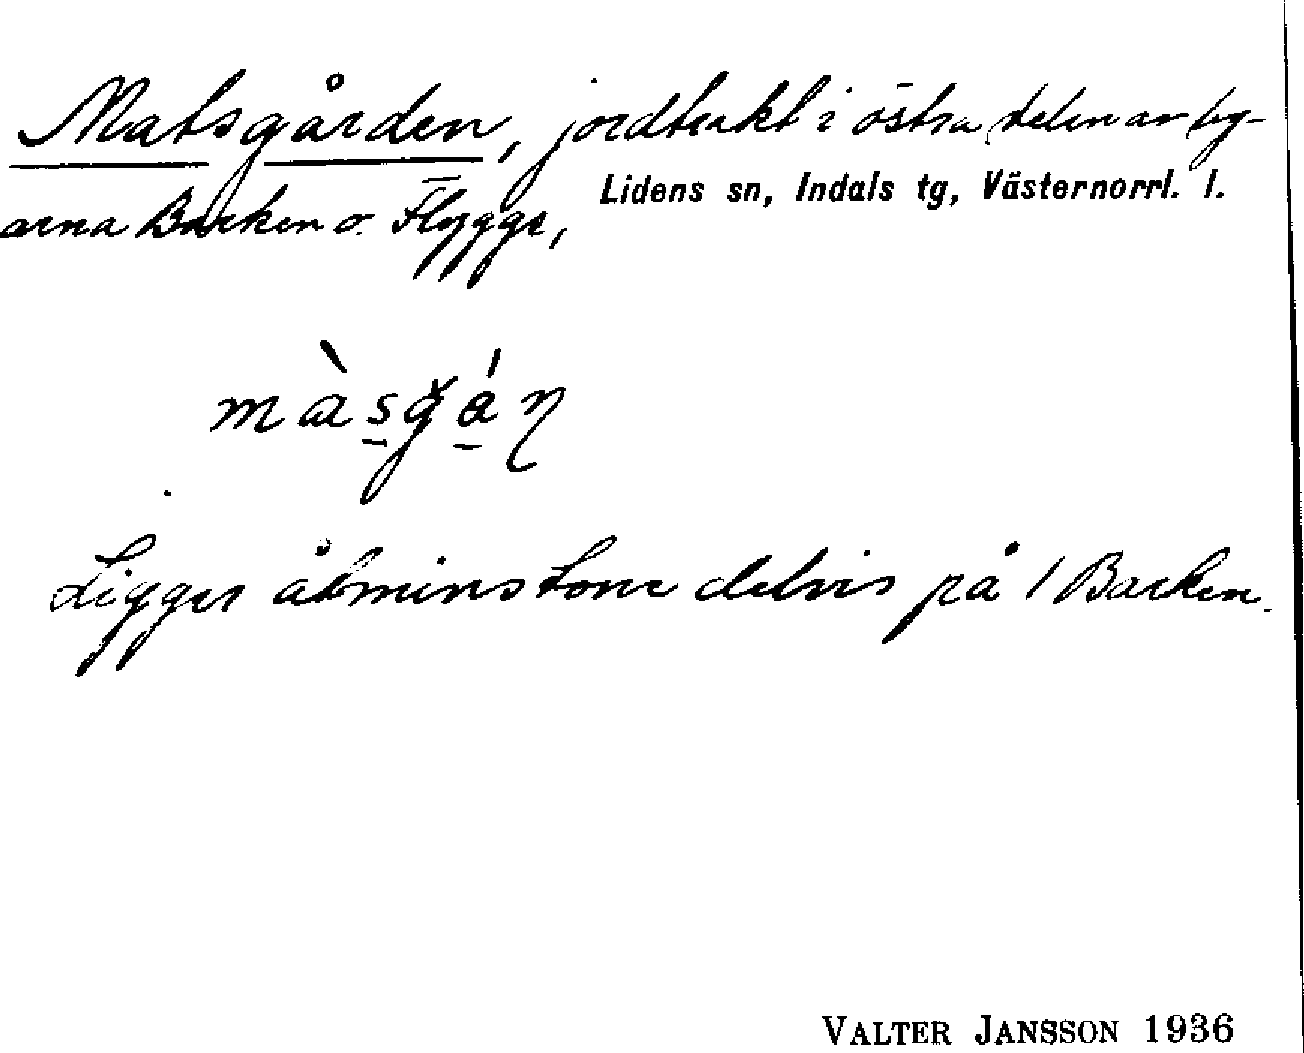 Matsgården, jordtrakt i östra delen av by-
arna Backen o. Flygge,
Lidens sn, Indals tg, Västernorrl. l.
Ligger åtminstone delvis på / Backen.
VALTER JANSSON 1936